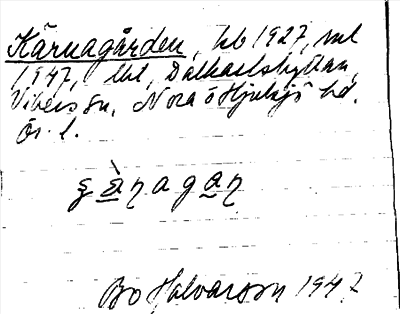 Kärnagården, hb 1927, ml
1947, lht, Dalkarlshyttan,
Vikers sn, Nora o Hjulsjö hd.
Ör. l.
Bo Halvarson 1947